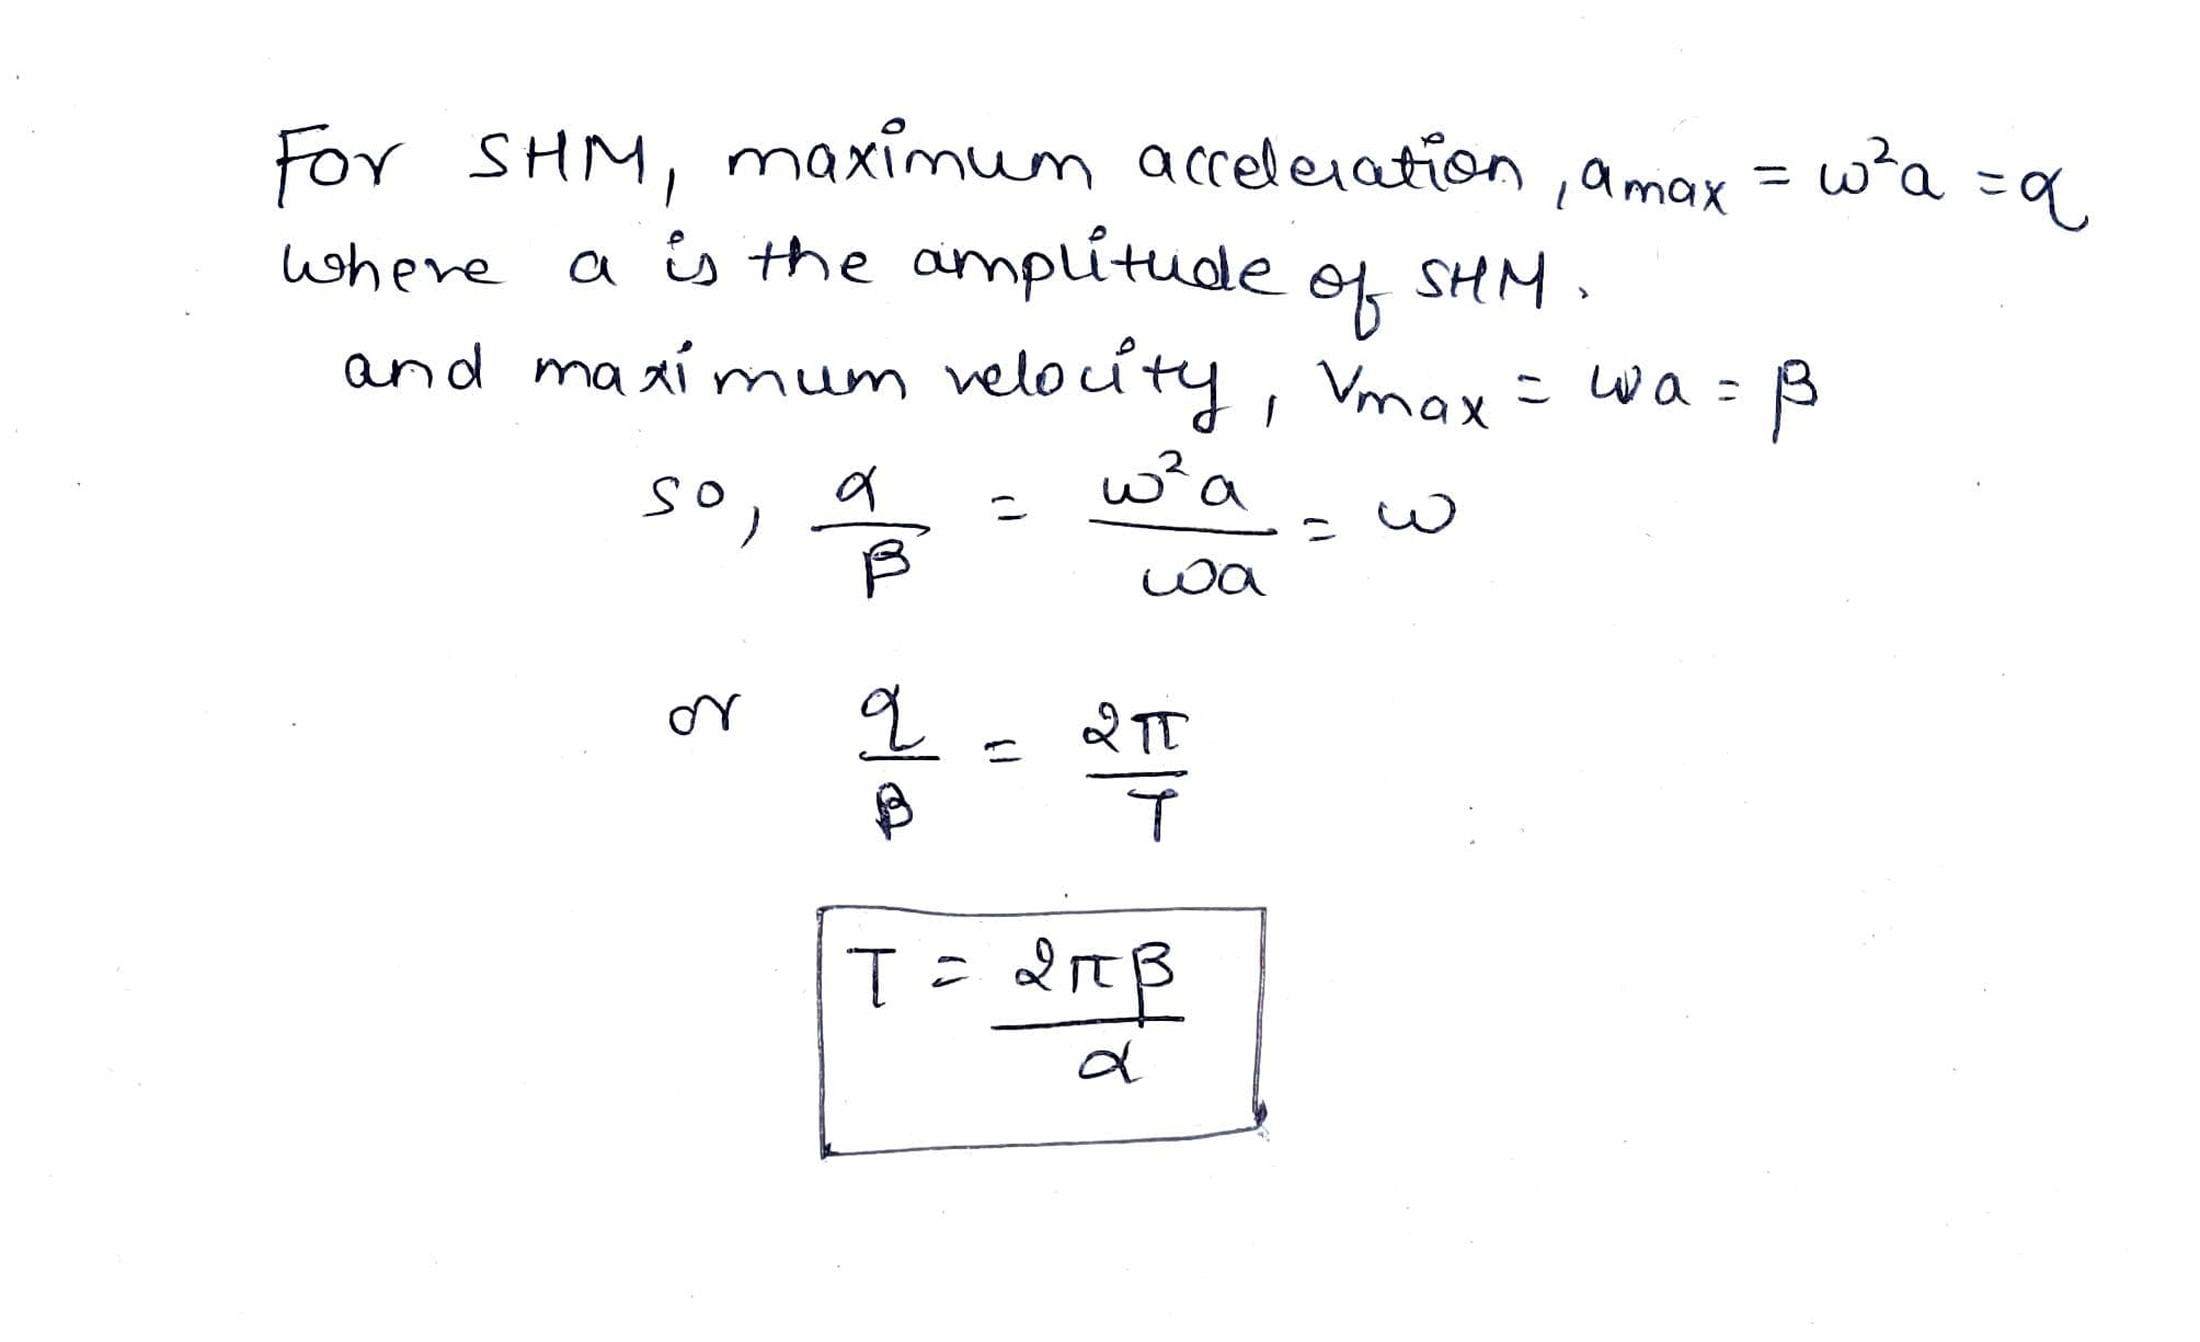 For SHM, maximum acceleration, amax = ω²a = α
where a is the amplitude of SHM.
and maximum velocity, Vmax = ωa = β
so, α/β = ω²a/ωa = ω
or α/β = 2π/T
T = 2πβ/α